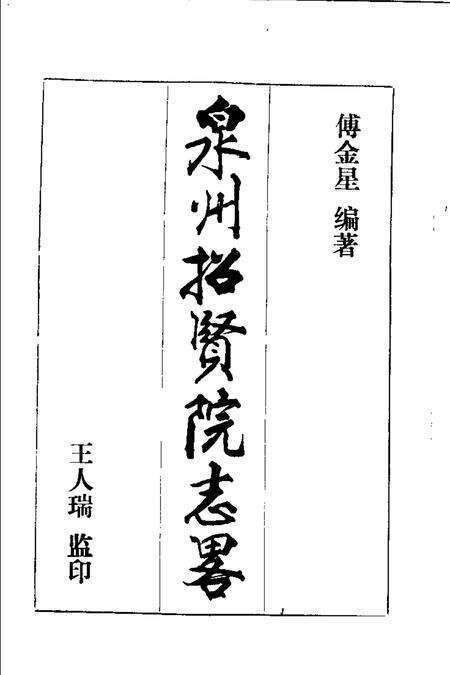 傅金星 编著
泉州招賢院志畧
王人瑞 监印